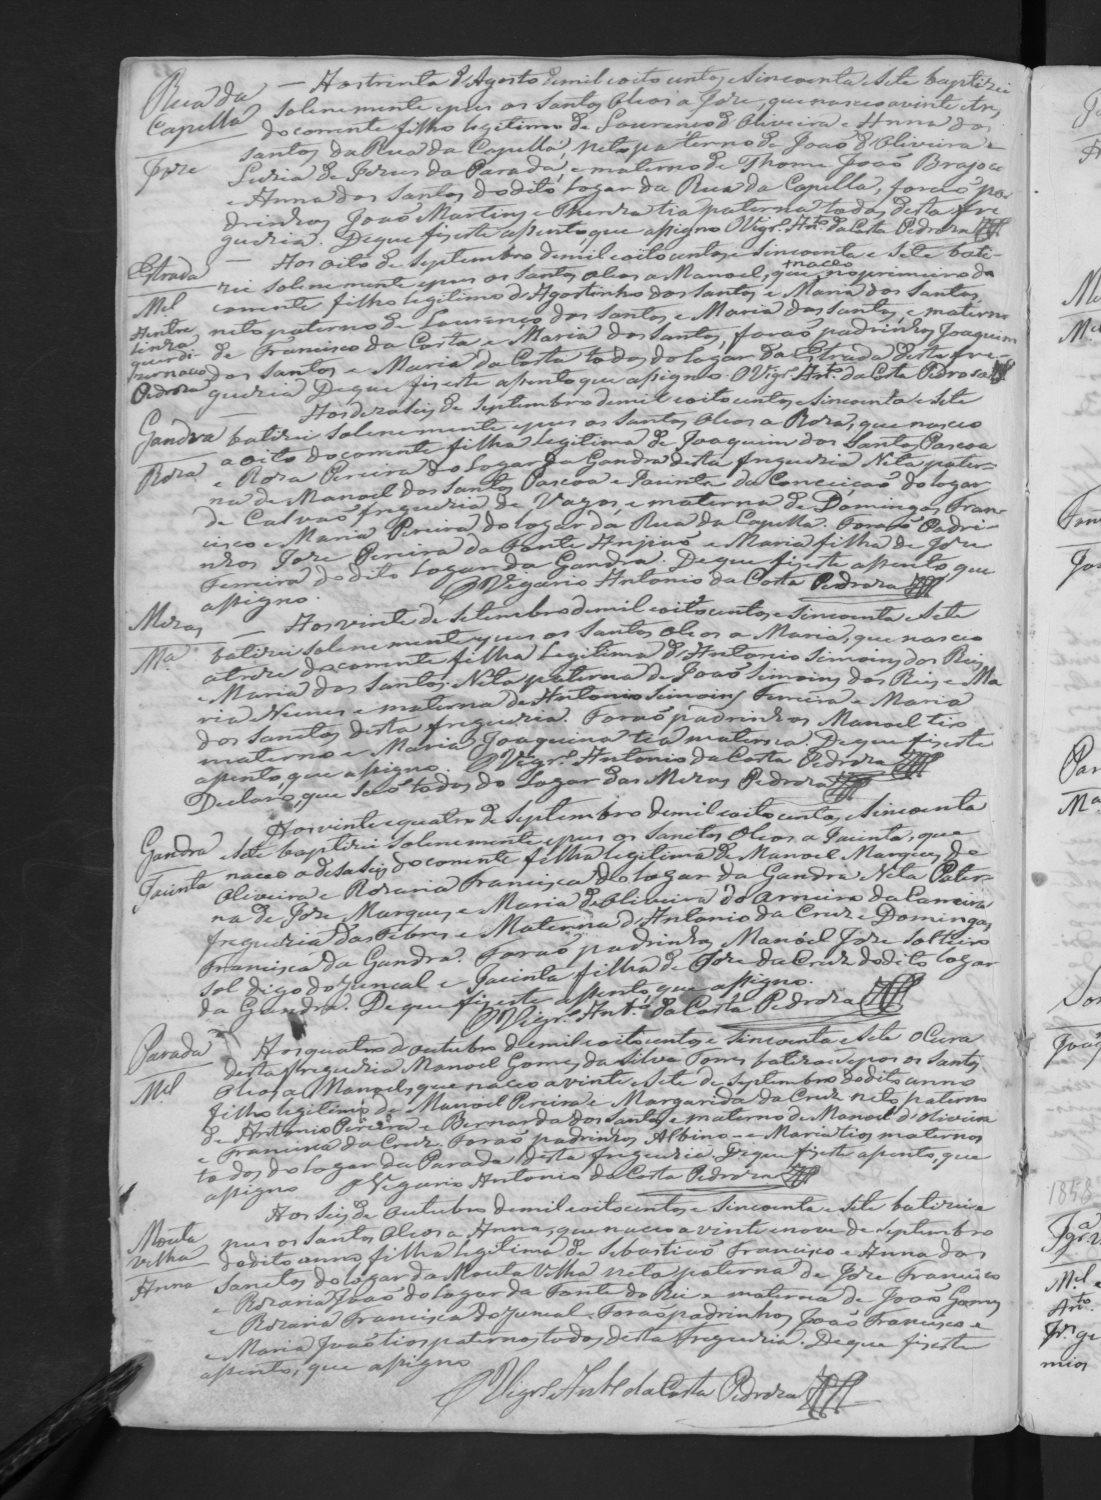 Rua da
Capella
Joze
— Aos trinta d'Agosto demil eoito centos e sincoenta e Sete baptizei
solenemente epus os Santos Oleos a Joze, que nasceo a vinte e tres
do corrente filho legitimo de Lourenço d'Oliveira e Anna dos
Santos da Rua da Capella, Neto paterno de Joaõ d'Oliveira e
Luzia de Jezus da Parada, e materno de Thome Joaõ Brajoca
e Anna dos Santos do dito Lugar da Rua da Capella, foraõ pa-
drinhos Joaõ Martins e Thereza tia paterna todos desta fre
guezia. Deque fiz este assento, que assigno O Vigr.º Ant.º da Costa Pedroza
Estrada
M.el
Antre
linha
que di-
s nasceo
Pedroza
— Aos oito de Septembro demil eoito centos e sincoenta e Sete bati-
zei solenemente epus os Santos Oleos a Manoel, que nasceo no primeiro do
corrente filho legitimo d'Agostinho dos Santos e Maria dos Santos
neto paterno de Lourenço dos Santos e Maria dos Santos, e materno
de Francisco da Costa e Maria dos Santos, foraõ padrinhos Joaquim
dos Santos e Maria da Costa todos do lugar da Estrada desta fre-
guezia Deque fiz este assento que assigno. O Vigr.º Ant.º da Costa Pedroza
Gandra
Roza
Aos dezaseis de Septembro demil eoito centos e sincoenta e Sete
batizei solenemente epus os Santos Oleos a Roza, que nasceo
a oito do corrente filha legitima de Joaquim dos Santos Pascoa
e Roza Pereira do Lugar da Gandra desta freguezia Neta pater-
na de Manoel dos Santos Pascoa e Jacinta da Conceiçaõ do lugar
de Calvaõ freguezia de Vagos, e materna de Domingos Fran-
cisco e Maria Pereira do lugar da Rua da Capella. Foraõ Padri-
nhos Joze Pereira da Fonte Anjiaõ e Maria filha de Joze
Ferreira do dito Lugar da Gandra. Deque fiz este assento que
assigno. O Vigario Antonio da Costa Pedroza
Mezas
M.a
— Aos vinte de Setembro demil eoito centos e sincoenta e Sete
batizei solenemente epus os Santos Oleos a Maria, que nasceo
a treze do corrente filha Legitima d'Antonio Simoins dos Reis
e Maria dos Santos. Neta paterna de Joaõ Simoins dos Reis e Ma
ria Neenes e materna de Antonio Simoins Ferreira e Maria
dos Sanctos desta freguezia. Foraõ padrinhos Manoel tio
materno e Maria Joaquina tia materna Deque fiz este
assento, que assigno. O Vigr.º Antonio da Costa Pedroza
Declaro, que saõ todos do Lugar das Mezas Pedroza
Gandra
Jacinta
Aos vinte e quatro de Septembro demil eoito centos, e sincoenta
e Sete baptizei solenemente epus os Sanctos Oleos a Jacinta, que
nasceo a dezaseis do corrente filha legitima de Manoel Marques de
Oliveira e Rozaria Francisca do Lugar da Gandra Neta Pater-
na de Joze Marques e Maria de Oliveira do Arneiro da Carreira
freguezia das Febres e Materna d'Antonio da Cruz e Domingas
Francisca da Gandra. Foraõ padrinhos Manoel Joze solteiro
sol digo do Juncal e Jacinta filha de Joze da Cruz do dito lugar
da Gandra. Deque fiz este assento, que assigno.
O Vigr.º Ant.º da Costa Pedroza
Parada
M.el
Aos quatro d'outubro demil eoito centos e sincoenta e Sete o Cura
desta freguezia Manoel Gomes da Silva Torres batizou epos os Santos
Oleos a Manoel, que nasceo a vinte e Sete de Septembro do dito anno
filho legitimo de Manoel Pereira e Margarida da Cruz neto paterno
de Antonio Pereira e Bernarda dos Santos e materno de Manoel d'Oliveira
e Francisca da Cruz. Foraõ padrinhos Albino e Maria tios maternos
todos do lugar da Parada desta freguezia. Deque fiz este assento, que
assigno O Vigario Antonio da Costa Pedroza
Mouta
velha
Anna
Aos Seis de Outubro demil eoito centos e sincoenta e Sete batizei e
pus os Santos Oleos a Anna, que nasceo a vinte e nove de Septembro
do dito anno filha legitima de Sebastiaõ Francisco e Anna dos
Sanctos do lugar da Mouta Velha neta paterna de Joze Francisco
e Rozaria Joaõ do lugar da Fonte do Rei e materna de Joaõ Gomes
e Rozaria Francisca do Juncal. Foraõ padrinhos Joaõ Francisco e
e Maria Joaõ tios paternos todos desta freguezia. Deque fiz este
assento, que assigno
O Vigr.º Ant.º da Costa Pedroza
1858